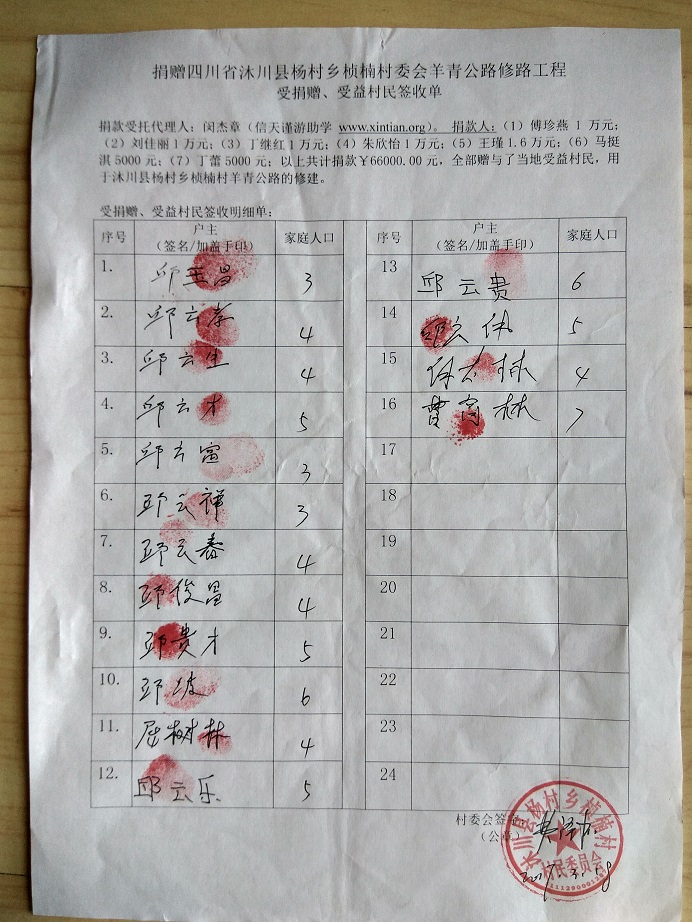 捐赠四川省沐川县杨村乡桢楠村委会羊青公路修路工程
受捐赠、受益村民签收单
捐款受托代理人：闵杰章（信天谨游助学 www.xintian.org）。 捐款人：（1）傅珍燕 1 万元；
（2）刘佳丽 1 万元；（3）丁继红 1 万元；（4）朱欣怡 1 万元；（5）王瑾 1.6 万元；（6）马挺
淇 5000 元；（7）丁蕾 5000 元；以上共计捐款￥66000.00 元，全部赠与了当地受益村民，用
于沐川县杨村乡桢楠村羊青公路的修建。
受捐赠、受益村民签收明细单：
序号 户主 家庭人口 序号 户主 家庭人口
（签名/加盖手印） （签名/加盖手印）
1. 邱玉昌 3 13 邱云贵 6
2. 邱云孝 4 14 邱云伟 5
3. 邱云生 4 15 4
4. 邱云才 5 16 曹富林 7
5. 邱云富 3 17
6. 邱云祥 3 18
7. 邱云春 4 19
8. 邱俊昌 4 20
9. 邱贵才 5 21
10. 邱波 6 22
11. 屈树林 4 23
12. 邱云乐 5 24
村委会签字
（公章）
沐川县杨村乡桢楠村
村民委员会